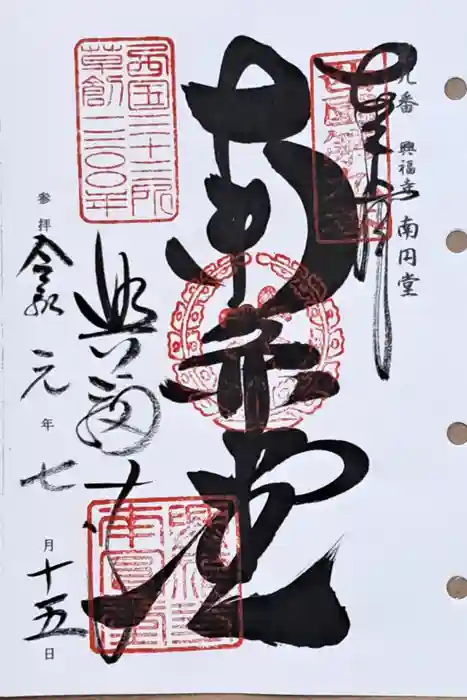 九番 興福寺 南円堂
奉拝
南円堂
西国三十三所
草創一三〇〇年
興福寺
参拝 令和元年七月十五日